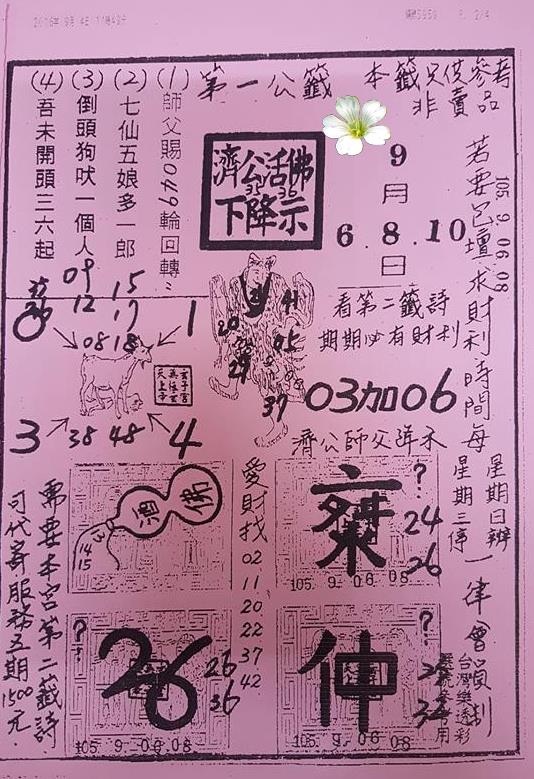 2016年 9月 4日 11時49分
P. 2/4
第一公籤
本籤只供參考
非賣品
(1)師父賜049輪回轉
(2)七仙五娘多一郎
(3)倒頭狗吠一個人
(4)吾未開頭三六起
濟公活佛
35 36
下降示
9
月
6.8.10
日
105 9 06 08
若要巳壇求財利時間每
星期日辦
星期三停
一律會
09
12
15
17
0
1
08 18
3
38 48
4
20
41
05
29
37
看第二籤詩
期期必有財利
03加06
濟公師父詳示
酒
佛
14
15
愛財找
02
11
20
22
37
42
?
24
26
105.9.06.08
?
26
26
36
105.9.06.08
?
仲
105.9.06.08
台灣樂透彩
需要本宮第二籤詩
可代寄服務五期1500元.